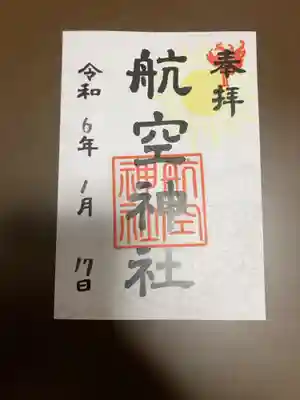 奉拝
航空神社
航空神社
令和6年1月17日